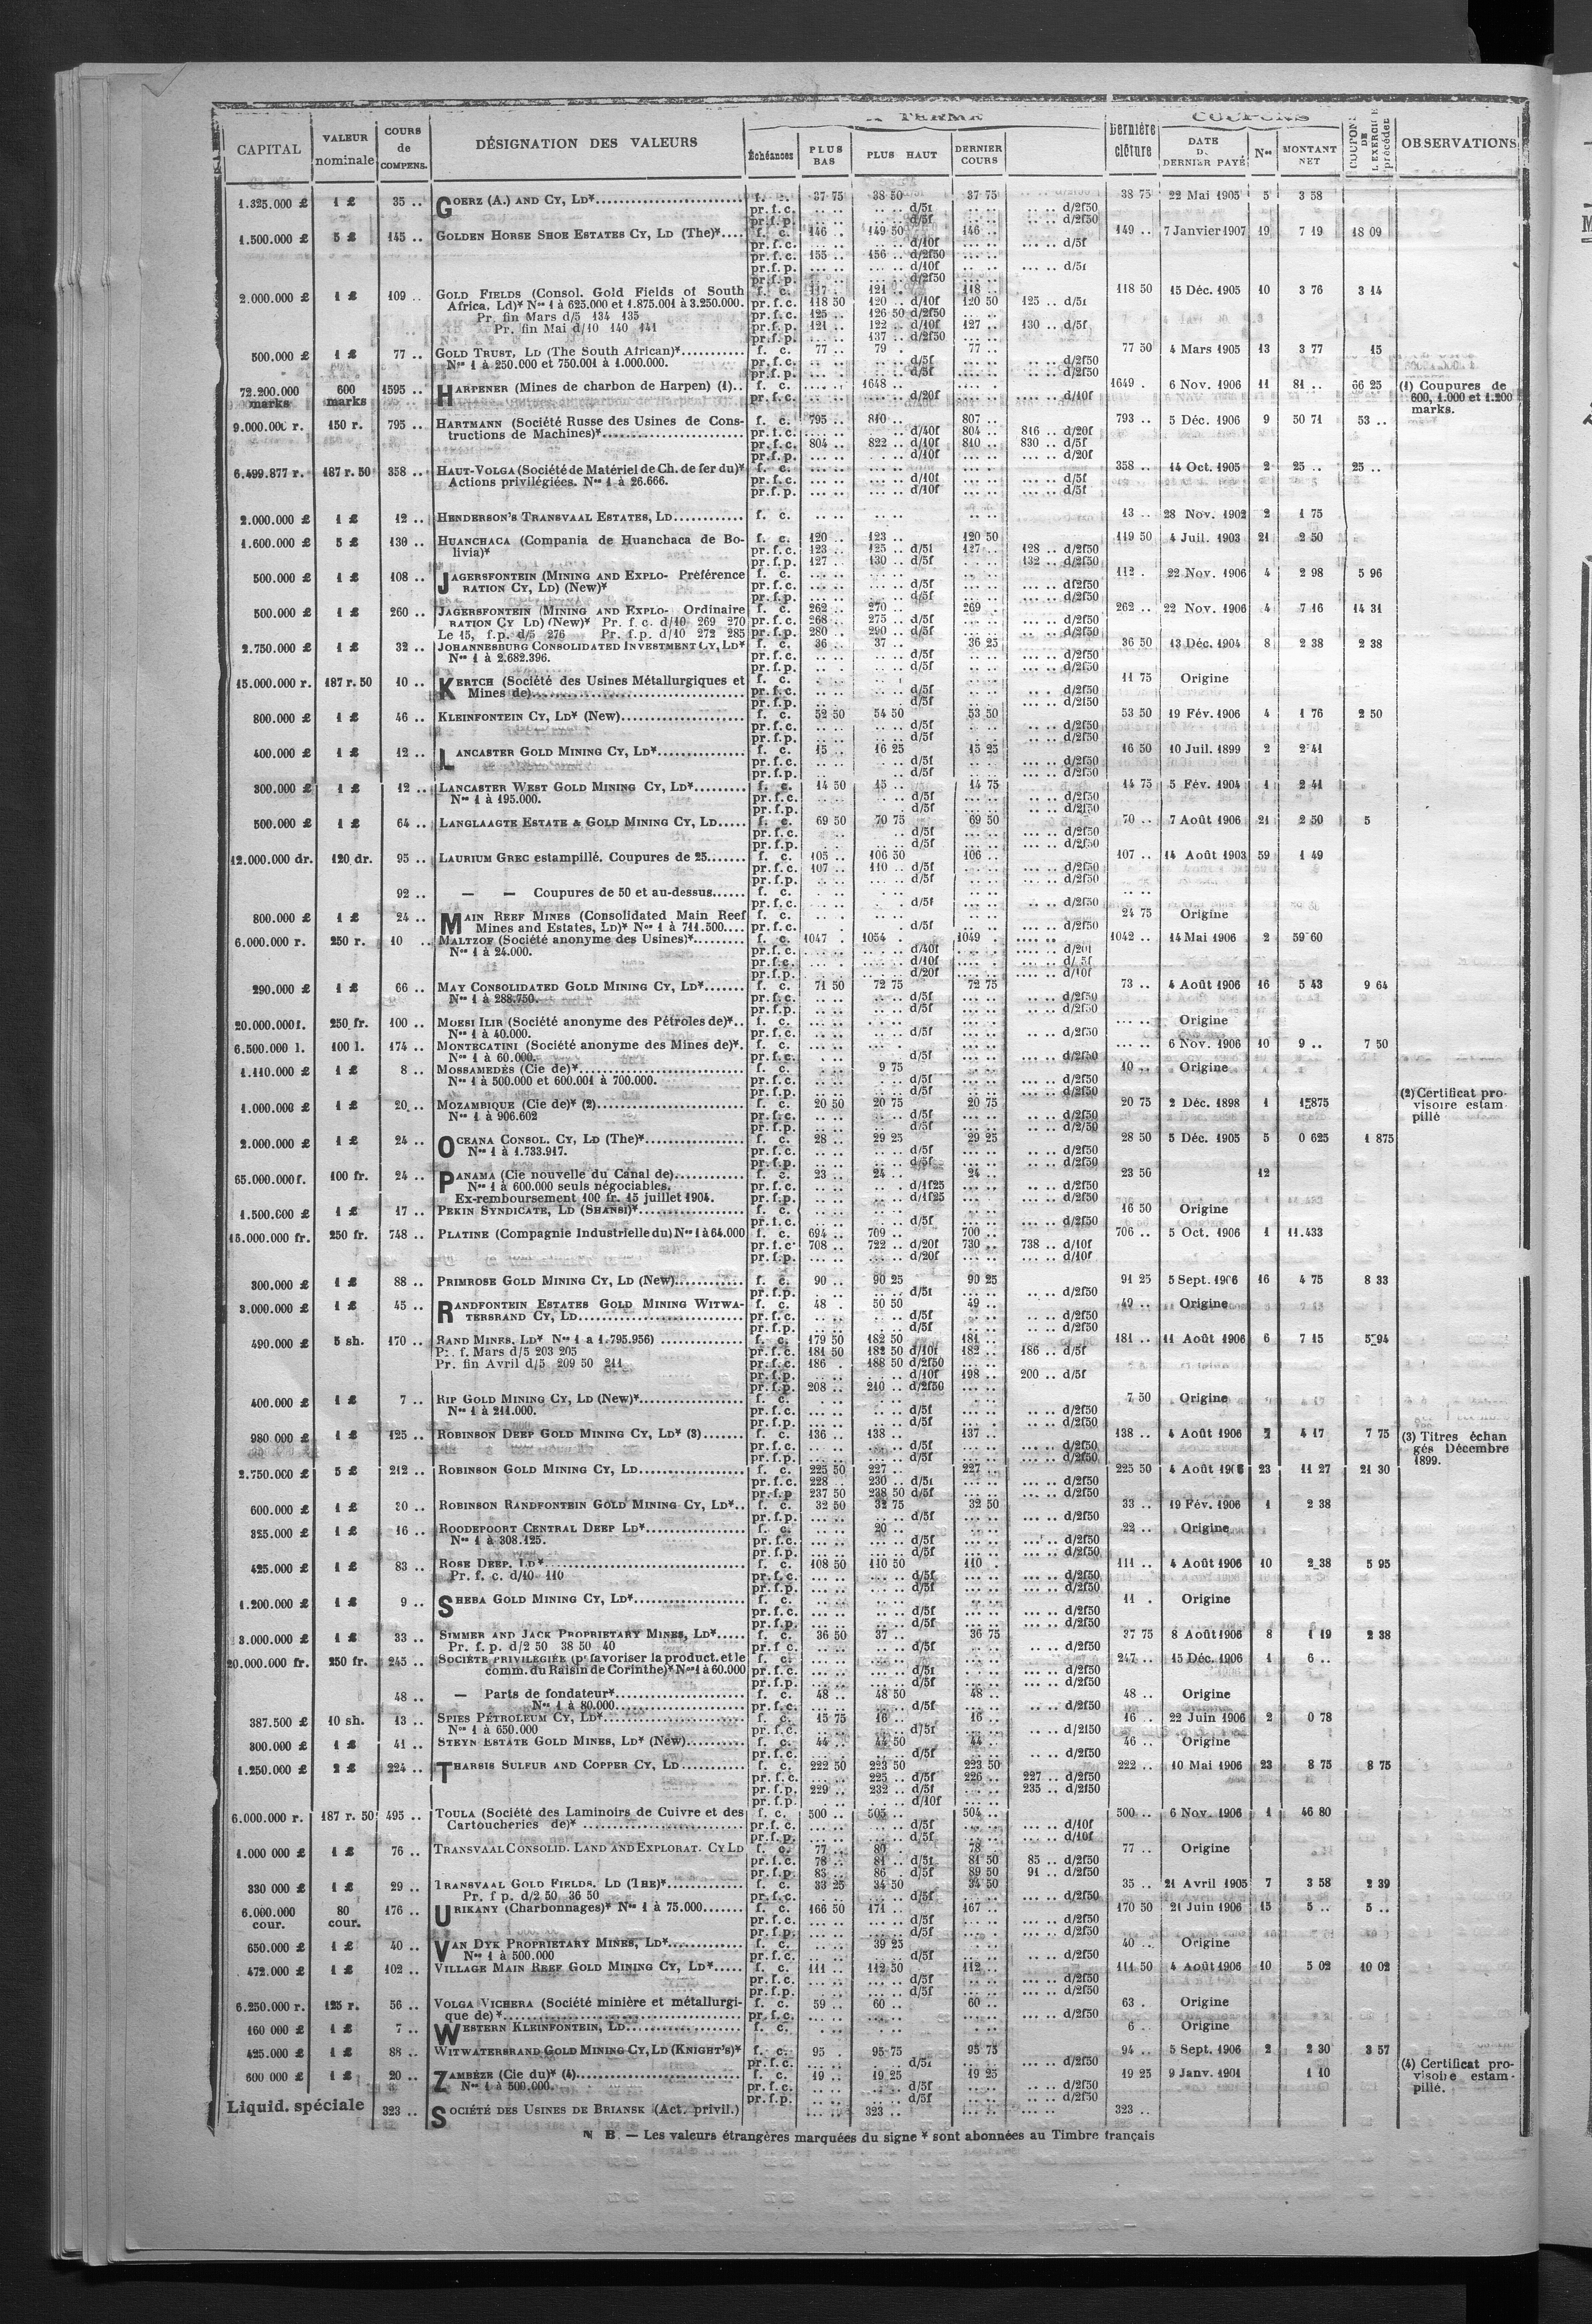 A TERME COUPONS
CAPITAL VALEUR nominale COURS de COMPENS. DÉSIGNATION DES VALEURS Échéances PLUS BAS PLUS HAUT DERNIER COURS Dernière clôture DATE DU DERNIER PAYÉ Nos MONTANT NET COUPONS DE L'EXERCICE précéden OBSERVATIONS
1.325.000 £ 1 £ 35 .. GOERZ (A.) AND CY, LD* 37 75 38 50 37 75 38 75 22 Mai 1905 5 3 58
pr. f. c. .. .. d/5f d/2f50
pr. f. p. .. .. d/5f d/2f50
1.500.000 £ 5 £ 145 .. GOLDEN HORSE SHOE ESTATES CY, LD (The)* f. c. 146 . 149 50 146 .. 149 .. 7 Janvier 1907 19 7 19 18 09
pr. f. c. d/10f d/5f
pr. f. c. 155 .. 156 .. d/2f50
pr. f. p. d/10f d/5f
pr. f. p. d/2f50
2.000.000 £ 1 £ 109 .. GOLD FIELDS (Consol. Gold Fields of South f. c. 117 .. 121 .. 118 .. 118 50 15 Déc. 1905 10 3 76 3 14
Africa, Ld)* Nos 1 à 625.000 et 1.875.001 à 3.250.000. pr. f. c. 118 50 120 .. d/10f 120 50 125 .. d/5f
Pr. fin Mars d/5 134 135 pr. f. c. 125 .. 126 50 d/2f50
Pr. fin Mai d/10 140 141 pr. f. p. 121 .. 122 .. d/10f 127 .. 130 .. d/5f
pr. f. p. 137 .. d/2f50
500.000 £ 1 £ 77 .. GOLD TRUST, LD (The South African)* f. c. 77 .. 79 . 77 .. 77 50 4 Mars 1905 13 3 77 15
Nos 1 à 250.000 et 750.001 à 1.000.000. pr. f. c. d/5f d/2f50
pr. f. p. d/5f d/2f50
72.200.000 marks 600 marks 1595 .. HARPENER (Mines de charbon de Harpen) (1).. f. c. 1648 .. 1649 . 6 Nov. 1906 11 81 .. 66 25 (1) Coupures de
pr. f. c. d/20f d/10f 600, 1.000 et 1.200
marks.
9.000.000 r. 150 r. 795 .. HARTMANN (Société Russe des Usines de Cons- f. c. 795 .. 810 .. 807 .. 793 .. 5 Déc. 1906 9 50 71 53 ..
tructions de Machines)* pr. f. c. d/40f 804 .. 816 .. d/20f
pr. f. c. 804 .. 822 .. d/10f 810 .. 830 .. d/5f
pr. f. p. d/10f d/20f
6.499.877 r. 187 r. 50 358 .. HAUT-VOLGA (Société de Matériel de Ch. de fer du)* f. c. 358 .. 14 Oct. 1905 2 25 .. 25 ..
Actions privilégiées. Nos 1 à 26.666. pr. f. c. d/10f d/5f
pr. f. p. d/10f d/5f
2.000.000 £ 1 £ 12 .. HENDERSON'S TRANSVAAL ESTATES, LD f. c. 13 .. 28 Nov. 1902 2 1 75
1.600.000 £ 5 £ 130 .. HUANCHACA (Compania de Huanchaca de Bo- f. c. 120 .. 123 .. 120 50 119 50 4 Juil. 1903 21 2 50
livia)* pr. f. c. 123 .. 125 .. d/5f 127 .. 128 .. d/2f50
pr. f. p. 127 .. 130 .. d/5f 132 .. d/2f50
500.000 £ 1 £ 108 .. JAGERSFONTEIN (MINING AND EXPLO- Préférence f. c. 112 . 22 Nov. 1906 4 2 98 5 96
RATION CY, LD) (New)* pr. f. c. d/5f d/2f50
pr. f. p. d/5f d/2f50
500.000 £ 1 £ 260 .. JAGERSFONTEIN (MINING AND EXPLO- Ordinaire f. c. 262 .. 270 .. 269 . 262 .. 22 Nov. 1906 4 7 16 14 31
RATION CY LD) (New)* Pr. f. c. d/10 269 270 pr. f. c. 268 .. 275 .. d/5f d/2f50
Le 15, f.p. d/5 276 Pr. f.p. d/10 272 285 pr. f. p. 280 .. 290 .. d/5f d/2f50
2.750.000 £ 1 £ 32 .. JOHANNESBURG CONSOLIDATED INVESTMENT CY, LD* f. c. 36 .. 37 .. 36 25 36 50 13 Déc. 1904 8 2 38 2 38
Nos 1 à 2.682.396. pr. f. c. d/5f d/2f50
pr. f. p. d/5f d/2f50
15.000.000 r. 187 r. 50 10 .. KERTCH (Société des Usines Métallurgiques et f. c. 11 75 Origine
Mines de) pr. f. c. d/5f d/2f50
pr. f. p. d/5f d/2f50
800.000 £ 1 £ 46 .. KLEINFONTEIN CY, LD* (New) f. c. 52 50 54 50 53 50 53 50 19 Fév. 1906 4 1 76 2 50
pr. f. c. d/5f d/2f50
pr. f. p. d/5f d/2f50
400.000 £ 1 £ 12 .. LANCASTER GOLD MINING CY, LD* f. c. 15 .. 16 25 15 25 16 50 10 Juil. 1899 2 2 41
pr. f. c. d/5f d/2f50
pr. f. p. d/5f d/2f50
300.000 £ 1 £ 12 .. LANCASTER WEST GOLD MINING CY, LD* f. c. 14 50 15 .. 14 75 14 75 5 Fév. 1904 1 2 41
Nos 1 à 195.000. pr. f. c. d/5f d/2f50
pr. f. p. d/5f d/2f50
500.000 £ 1 £ 64 .. LANGLAAGTE ESTATE & GOLD MINING CY, LD f. c. 69 50 70 75 69 50 70 .. 7 Août 1906 21 2 50 5
pr. f. c. d/5f d/2f50
pr. f. p. d/5f d/2f50
12.000.000 dr. 120 dr. 95 .. LAURIUM GREC estampillé. Coupures de 25 f. c. 105 .. 106 50 106 .. 107 .. 14 Août 1903 59 1 49
pr. f. c. 107 .. 110 .. d/5f d/2f50
pr. f. p. d/5f d/2f50
92 .. — — Coupures de 50 et au-dessus f. c.
pr. f. c. d/5f d/2f50
800.000 £ 1 £ 24 .. MAIN REEF MINES (Consolidated Main Reef f. c. 24 75 Origine
Mines and Estates, LD)* Nos 1 à 711.500 pr. f. c. d/5f d/2f50
6.000.000 r. 250 r. 10 .. MALTZOF (Société anonyme des Usines)* f. c. 1047 . 1054 . 1049 1042 .. 14 Mai 1906 2 59 60
Nos 1 à 24.000. pr. f. c. d/40f d/20f
pr. f. c. d/10f d/5f
pr. f. p. d/20f d/10f
290.000 £ 1 £ 66 .. MAY CONSOLIDATED GOLD MINING CY, LD* f. c. 71 50 72 75 72 75 73 .. 4 Août 1906 16 5 43 9 64
Nos 1 à 288.750. pr. f. c. d/5f d/2f50
pr. f. p. d/5f d/2f50
20.000.000 f. 250 fr. 100 .. MOESI ILIR (Société anonyme des Pétroles de)* f. c. Origine
Nos 1 à 40.000. pr. f. c. d/5f d/2f50
6.500.000 l. 100 l. 174 .. MONTECATINI (Société anonyme des Mines de)* f. c. 6 Nov. 1906 10 9 .. 7 50
Nos 1 à 60.000. pr. f. c. d/5f d/2f50
1.110.000 £ 1 £ 8 .. MOSSAMEDÈS (Cie de)* f. c. 9 75 10 .. Origine
Nos 1 à 500.000 et 600.001 à 700.000. pr. f. c. d/5f d/2f50
pr. f. p. d/5f d/2f50
1.000.000 £ 1 £ 20 .. MOZAMBIQUE (Cie de)* (2) f. c. 20 50 20 75 20 75 20 75 2 Déc. 1898 1 1 875 (2) Certificat pro-
Nos 1 à 906.602 pr. f. c. d/5f d/2f50 visoire estam
pr. f. p. d/5f d/2f50 pillé
2.000.000 £ 1 £ 24 .. OCEANA CONSOL. CY, LD (The)* f. c. 28 .. 29 25 29 25 28 50 5 Déc. 1905 5 0 625 1 875
Nos 1 à 1.733.917. pr. f. c. d/5f d/2f50
pr. f. p. d/5f d/2f50
65.000.000 f. 100 fr. 24 .. PANAMA (Cie nouvelle du Canal de) f. c. 23 .. 24 .. 24 .. 23 50 12
Nos 1 à 600.000 seuls négociables. pr. f. c. d/1f25 d/2f50
Ex-remboursement 100 fr. 15 juillet 1904. pr. f. p. d/1f25 d/2f50
1.500.000 £ 1 £ 17 .. PEKIN SYNDICATE, LD (SHANSI)* f. c. 16 50 Origine
pr. f. c. d/5f d/2f50
16.000.000 fr. 250 fr. 748 .. PLATINE (Compagnie Industrielle du) Nos 1 à 64.000 f. c. 694 .. 709 .. 700 .. 706 .. 5 Oct. 1906 1 11.433
pr. f. c. 708 .. 722 .. d/20f 730 .. 738 .. d/10f
pr. f. p. d/20f d/10f
300.000 £ 1 £ 88 .. PRIMROSE GOLD MINING CY, LD (New) f. c. 90 .. 90 25 90 25 91 25 5 Sept. 1906 16 4 75 8 33
pr. f. p. d/5f d/2f50
3.000.000 £ 1 £ 45 .. RANDFONTEIN ESTATES GOLD MINING WITWA- f. c. 48 . 50 50 49 .. 49 .. Origine
TERSRAND CY, LD pr. f. c. d/5f d/2f50
pr. f. p. d/5f d/2f50
490.000 £ 5 sh. 170 .. RAND MINES, LD* Nos 1 a 1.795.956) f. c. 179 50 182 50 181 .. 181 .. 11 Août 1906 6 7 15 5 94
Pr. f. Mars d/5 203 205 pr. f. c. 181 50 182 50 d/10f 182 .. 186 .. d/5f
Pr. fin Avril d/5 209 50 211 pr. f. c. 186 . 188 50 d/2f50
pr. f. p. d/10f 198 .. 200 .. d/5f
pr. f. p. 208 .. 210 .. d/2f50
400.000 £ 1 £ 7 .. RIP GOLD MINING CY, LD (New)* f. c. 7 50 Origine
Nos 1 à 211.000. pr. f. c. d/5f d/2f50
pr. f. p. d/5f d/2f50
980.000 £ 1 £ 125 .. ROBINSON DEEP GOLD MINING CY, LD* (3) f. c. 136 .. 138 .. 137 .. 138 .. 4 Août 1906 7 4 17 7 75 (3) Titres échan
pr. f. c. d/5f d/2f50 gés Décembre
pr. f. p. d/5f d/2f50 1899.
2.750.000 £ 5 £ 212 .. ROBINSON GOLD MINING CY, LD f. c. 225 50 227 .. 227 .. 225 50 4 Août 1906 23 11 27 21 30
pr. f. c. 228 .. 230 .. d/5f d/2f50
pr. f. p. 237 50 238 50 d/5f d/2f50
600.000 £ 1 £ 30 .. ROBINSON RANDFONTEIN GOLD MINING CY, LD* f. c. 32 50 32 75 32 50 33 .. 19 Fév. 1906 1 2 38
pr. f. p. d/5f d/2f50
325.000 £ 1 £ 16 .. ROODEPOORT CENTRAL DEEP LD* f. c. 20 .. 22 .. Origine
Nos 1 à 308.125. pr. f. c. d/5f d/2f50
pr. f. p. d/5f d/2f50
425.000 £ 1 £ 83 .. ROSE DEEP, LD* f. c. 108 50 110 50 110 . 111 .. 4 Août 1906 10 2 38 5 95
Pr. f. c. d/10 110 pr. f. c. d/5f d/2f50
pr. f. p. d/5f d/2f50
1.200.000 £ 1 £ 9 .. SHEBA GOLD MINING CY, LD* f. c. 11 . Origine
pr. f. c. d/5f d/2f50
pr. f. p. d/5f d/2f50
3.000.000 £ 1 £ 33 .. SIMMER AND JACK PROPRIETARY MINES, LD* f. c. 36 50 37 .. 36 75 37 75 8 Août 1906 8 1 19 2 38
Pr. f. p. d/2 50 38 50 40 pr. f. c. d/5f d/2f50
20.000.000 fr. 250 fr. 245 .. SOCIÉTÉ PRIVILÉGIÉE (pr favoriser la product. et le f. c. 247 .. 15 Déc. 1906 1 6 ..
comm. du Raisin de Corinthe)* Nos 1 à 60.000 pr. f. c. d/5f d/2f50
pr. f. p. d/5f d/2f50
48 .. — Parts de fondateur* f. c. 48 .. 48 50 48 .. 48 .. Origine
Nos 1 à 80.000 pr. f. c. d/5f d/2f50
387.500 £ 10 sh. 13 .. SPIES PÉTROLEUM CY, LD* f. c. 15 75 16 .. 16 .. 16 .. 22 Juin 1906 2 0 78
Nos 1 à 650.000 pr. f. c. d/5f d/2f50
300.000 £ 1 £ 41 .. STEYN ESTATE GOLD MINES, LD* (New) f. c. 44 .. 44 50 44 .. 46 .. Origine
pr. f. c. d/5f d/2f50
1.250.000 £ 2 £ 224 .. THARSIS SULFUR AND COPPER CY, LD f. c. 222 50 223 50 223 50 222 .. 10 Mai 1906 23 8 75 8 75
pr. f. c. 225 .. d/5f 226 .. 227 .. d/2f50
pr. f. p. 229 .. 232 .. d/5f 235 .. d/2f50
pr. f. p. d/10f
6.000.000 r. 187 r. 50 495 .. TOULA (Société des Laminoirs de Cuivre et des f. c. 500 .. 505 .. 504 .. 500 .. 6 Nov. 1906 1 46 80
Cartoucheries de)* pr. f. c. d/5f d/10f
pr. f. p. d/5f d/10f
1.000 000 £ 1 £ 76 .. TRANSVAAL CONSOLID. LAND AND EXPLORAT. CY LD f. c. 77 .. 80 . 78 .. 77 .. Origine
pr. f. c. 78 .. 81 .. d/5f 81 50 85 .. d/2f50
pr. f. p. 85 .. 86 .. d/5f 89 50 91 .. d/2f50
330 000 £ 1 £ 29 .. TRANSVAAL GOLD FIELDS, LD (THE)* f. c. 33 25 34 50 34 50 35 .. 21 Avril 1905 7 3 58 2 39
Pr. f p. d/2 50 36 50 pr. f. c. d/5f d/2f50
6.000.000 cour. 80 cour. 176 .. URIKANY (Charbonnages)* Nos 1 à 75.000 f. c. 166 50 171 .. 167 .. 170 50 21 Juin 1906 15 5 .. 5 ..
pr. f. c. d/5f d/2f50
pr. f. p. d/5f d/2f50
650.000 £ 1 £ 40 .. VAN DYK PROPRIETARY MINES, LD* f. c. 39 25 40 .. Origine
Nos 1 à 500.000 pr. f. c. d/5f d/2f50
472.000 £ 1 £ 102 .. VILLAGE MAIN REEF GOLD MINING CY, LD* f. c. 111 .. 112 50 112 .. 111 50 4 Août 1906 10 5 02 10 02
pr. f. c. d/5f d/2f50
pr. f. p. d/5f d/2f50
6.250.000 r. 125 r. 56 .. VOLGA VICHERA (Société minière et métallurgi- f. c. 59 .. 60 .. 60 .. 63 . Origine
que de)* pr. f. c. d/2f50
160 000 £ 1 £ 7 .. WESTERN KLEINFONTEIN, LD f. c. 6 .. Origine
425.000 £ 1 £ 88 .. WITWATERSRAND GOLD MINING CY, LD (KNIGHT'S)* f. c. 95 . 95 75 95 75 94 .. 5 Sept. 1906 2 2 30 3 57
pr. f. c. d/5f d/2f50
600 000 £ 1 £ 20 .. ZAMBÈZE (Cie du)* (4) f. c. 19 .. 19 25 19 25 19 25 9 Janv. 1901 1 10 (4) Certificat pro-
Nos 1 à 500.000. pr. f. c. d/5f d/2f50 visoire estam-
pr. f. p. d/5f d/2f50 pillé.
Liquid. spéciale 323 .. SOCIÉTÉ DES USINES DE BRIANSK (Act. privil.) 323 .. 323 ..
N B. — Les valeurs étrangères marquées du signe * sont abonnées au Timbre français